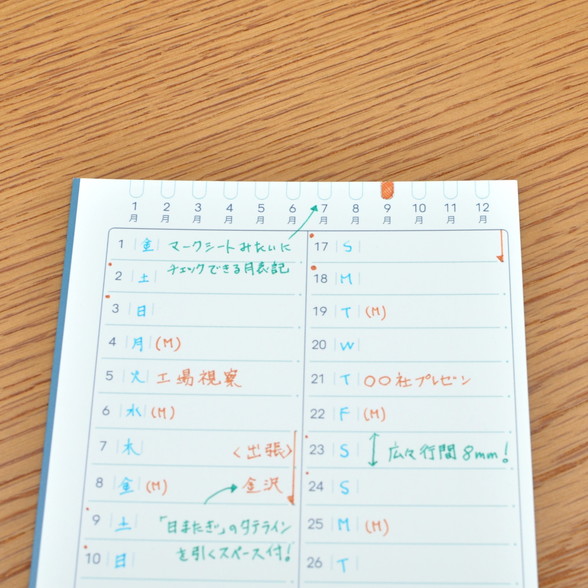 1月 2月 3月 4月 5月 6月 7月 8月 9月 10月 11月 12月
1 金 マークシートみたいに
チェックできる月表記
2 土
3 日
4 月 (M)
5 火 工場視察
6 水 (M)
7 木 〈出張〉
8 金 (M) 金沢
9 土 「日またぎ」のタテライン
を引くスペース付!
10 日
17 S
18 M
19 T (M)
20 W
21 T 〇〇社プレゼン
22 F (M)
23 S 広々行間8mm!
24 S
25 M (M)
26 T